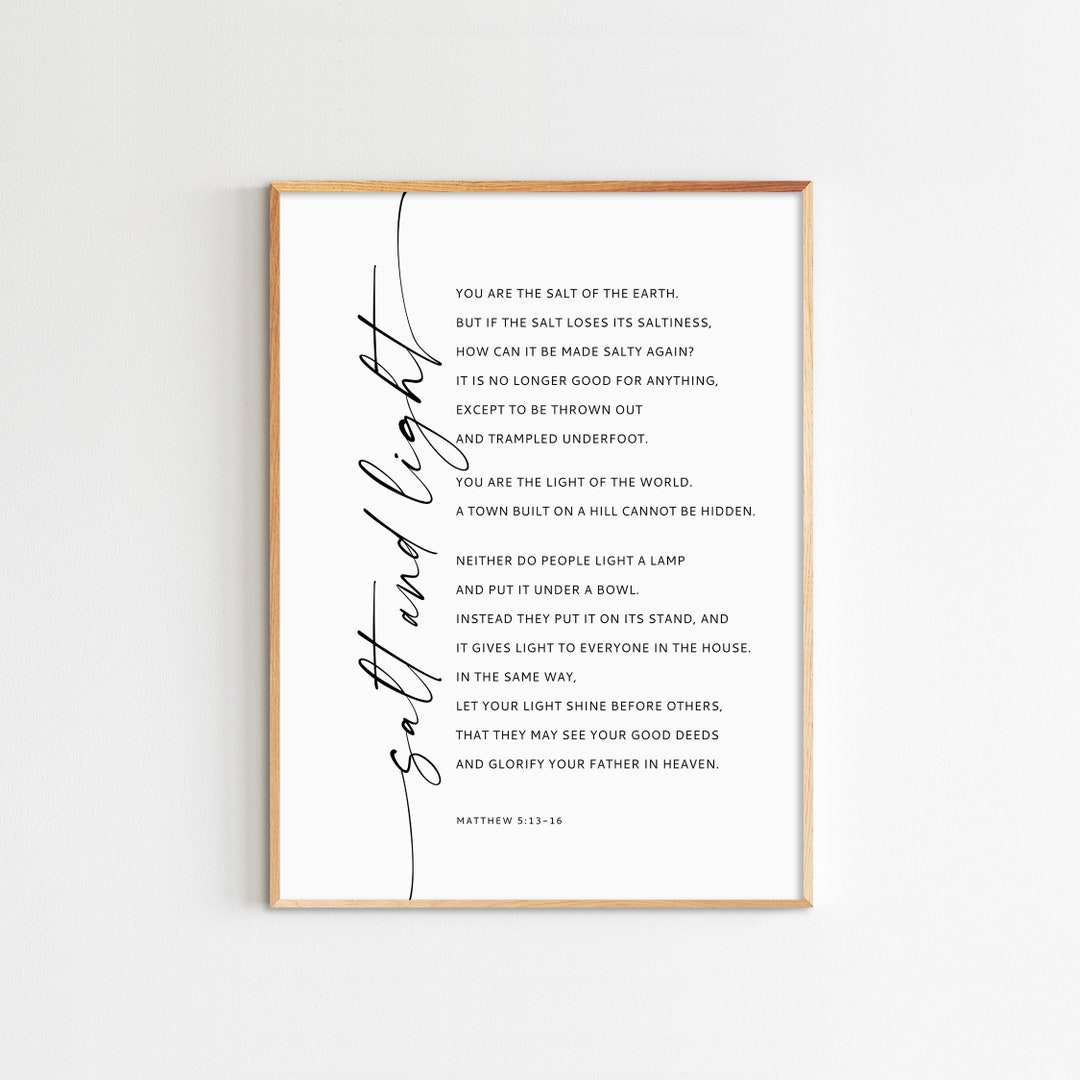 salt and light
YOU ARE THE SALT OF THE EARTH.
BUT IF THE SALT LOSES ITS SALTINESS,
HOW CAN IT BE MADE SALTY AGAIN?
IT IS NO LONGER GOOD FOR ANYTHING,
EXCEPT TO BE THROWN OUT
AND TRAMPLED UNDERFOOT.
YOU ARE THE LIGHT OF THE WORLD.
A TOWN BUILT ON A HILL CANNOT BE HIDDEN.
NEITHER DO PEOPLE LIGHT A LAMP
AND PUT IT UNDER A BOWL.
INSTEAD THEY PUT IT ON ITS STAND, AND
IT GIVES LIGHT TO EVERYONE IN THE HOUSE.
IN THE SAME WAY,
LET YOUR LIGHT SHINE BEFORE OTHERS,
THAT THEY MAY SEE YOUR GOOD DEEDS
AND GLORIFY YOUR FATHER IN HEAVEN.
MATTHEW 5:13-16